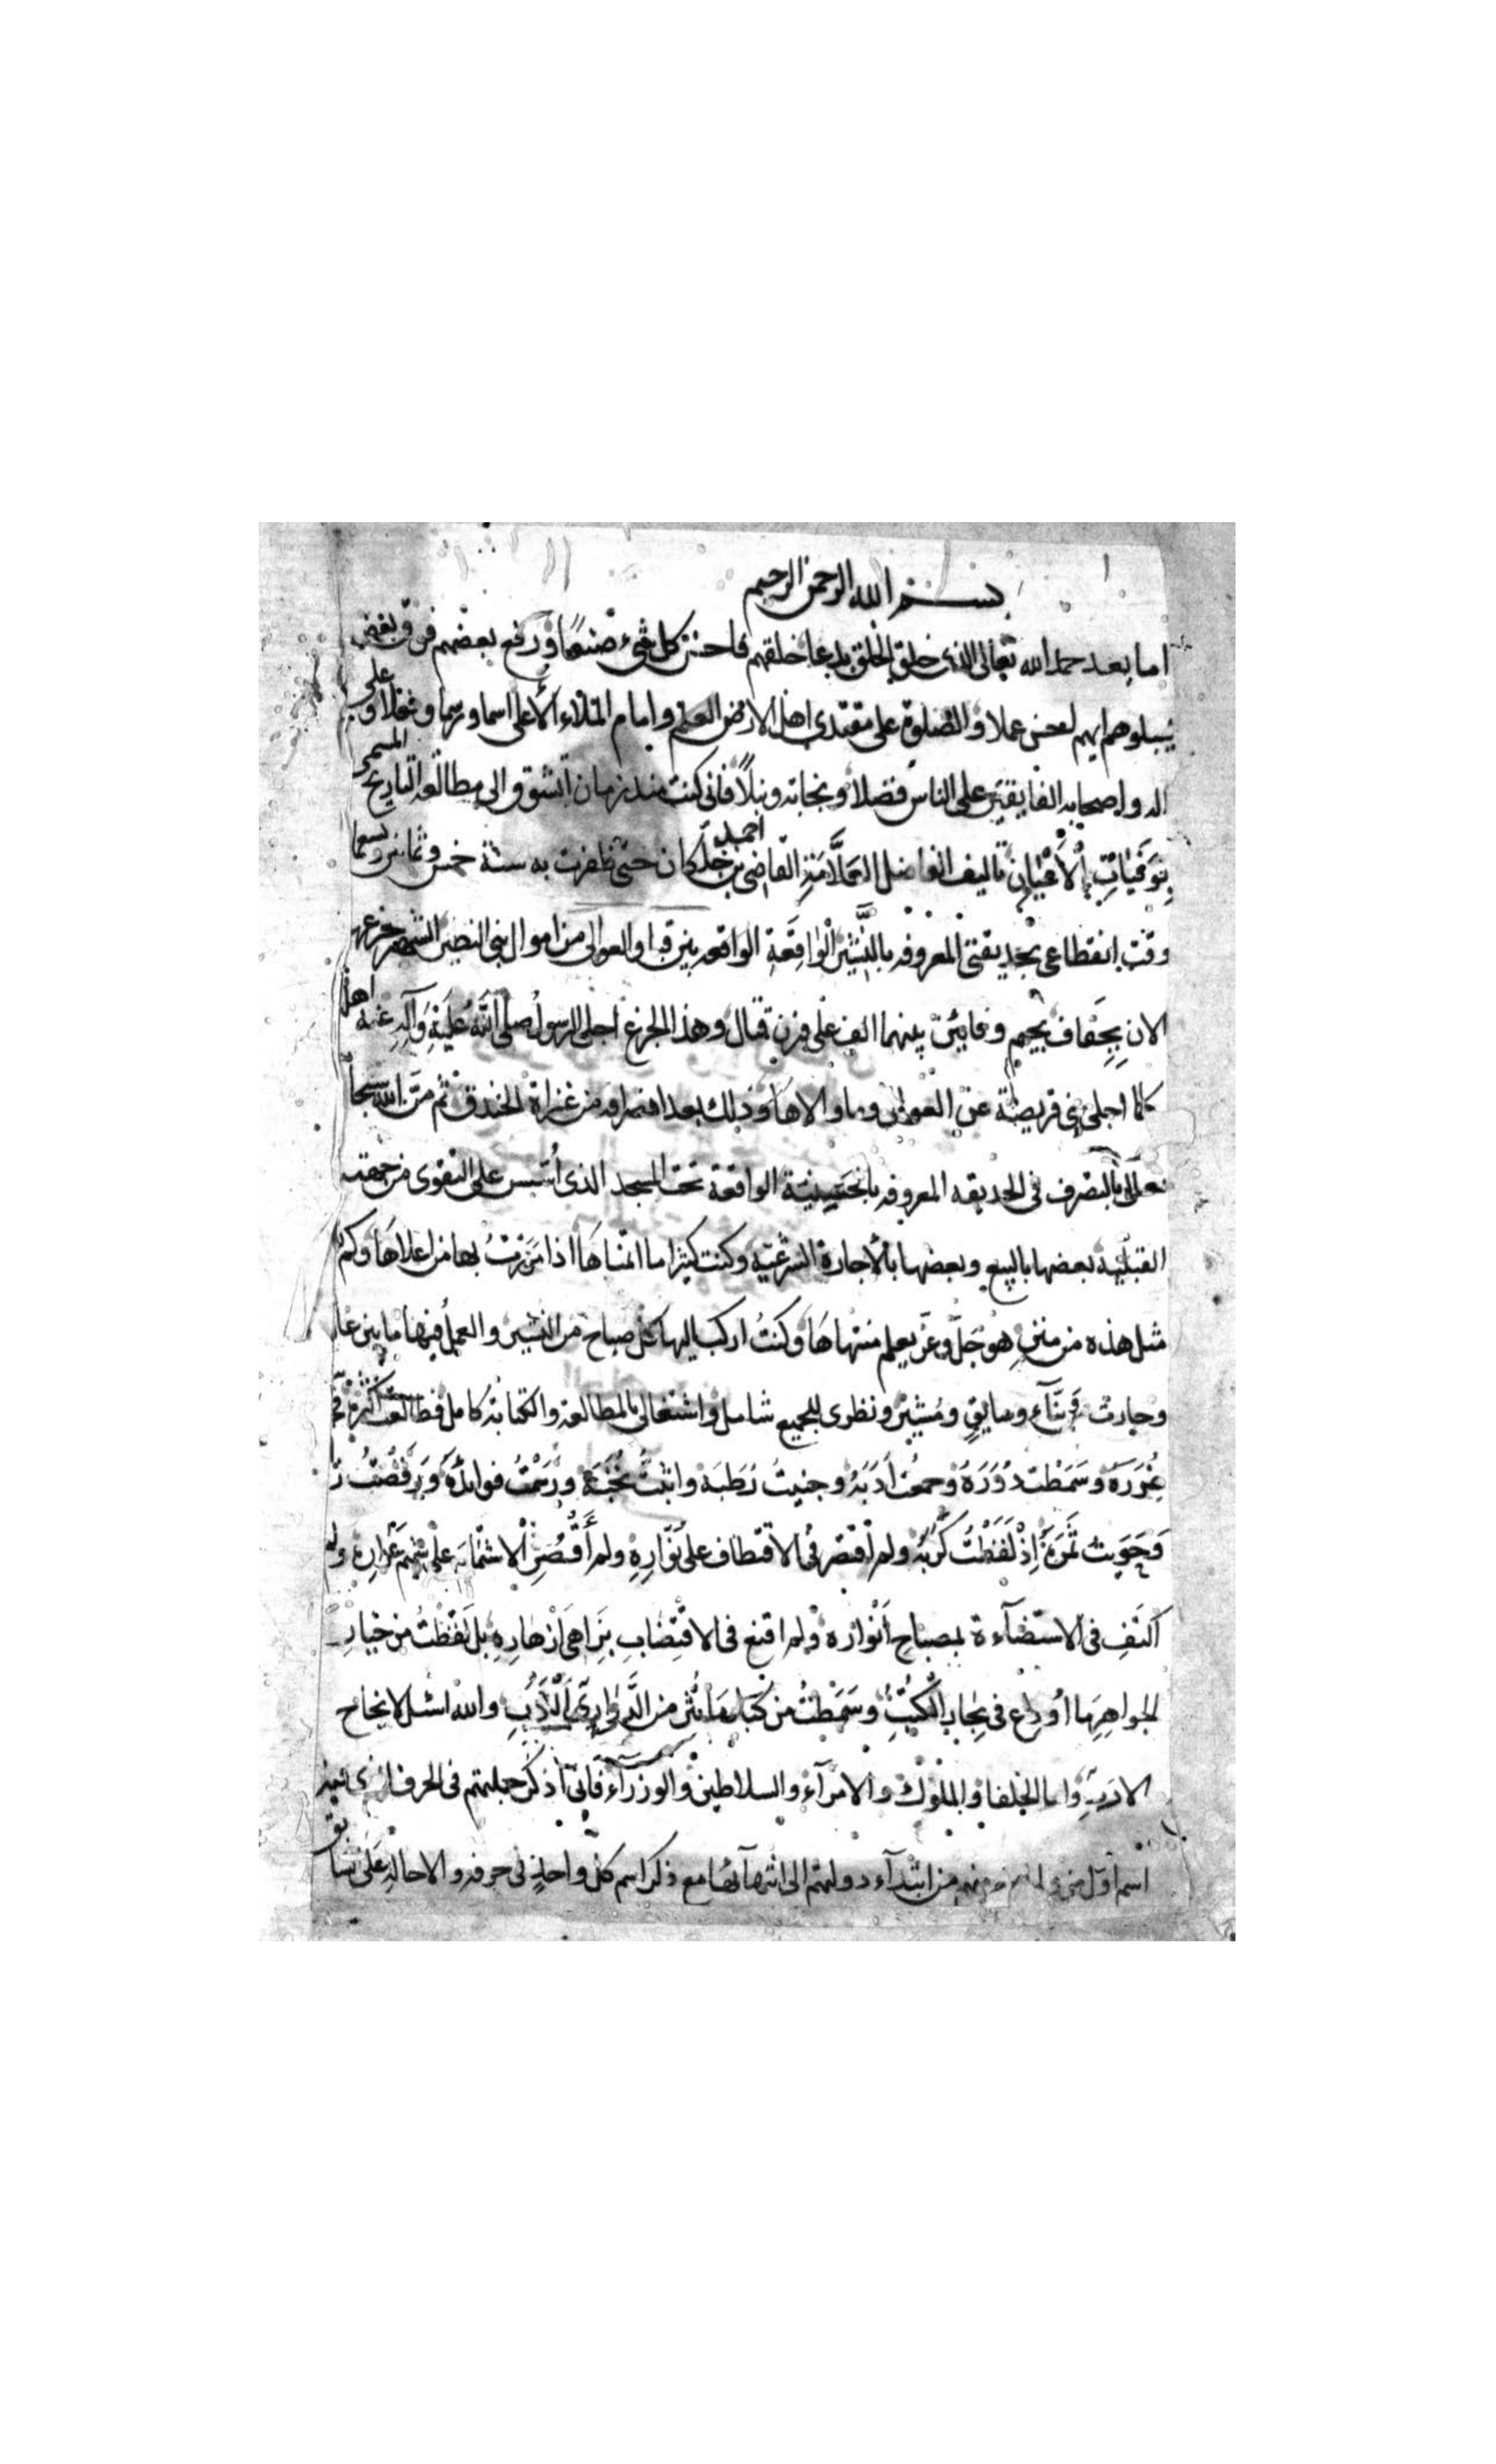 بسم الله الرحمن الرحيم
اما بعد حمد الله تعالى الذى خلق الخلق بدعا خلقهم فاحسن كل شىء صنعا ورفع بعضهم فوق بعض
ليبلوهم ايهم احسن عملا والصلوة على مقتدى اهل الارض العلم وامام الملاء الأعلى اسما ورسما وفعلا وعلى
اله واصحابه الفايقين على الناس فضلا ونجابة ونبلاً فانى كنت منذ زمان اتشوق الى مطالعة التاريخ المسمى
بِوَفَيَاتِ الْأَعْيَانِ تاليف الفاضل العلَّامَةِ القاضى احمد بن خلّكان حتى ظفرت به سنة خمس وثمانين وتسعما
وقت انقطاعى بحديقتى المعروفه بالنُّشَيْرِ الْوَاقِعَةِ الواقعه بين قبا والعوالى من اموال بنى النضير الشهير جزعها
الان بِجِفاف بجيم وفايين بينهما الف على وزن قتال وهذا الجزع اجلى الرسول صلى الله عَلَيْهِ وَآلِهِ عنه اهل
كما اجلى بنى قريضة عن العوالى وما والاها وذلك بعد انصرافه من غزاة الخندق ثم منّ الله سبحا
تعالى بالتصرف فى الحديقه المعروفه بالحسينية الواقعة تحت المسجد الذى أُسّس على التقوى من جهته
القبلية بعضها بالبيع وبعضها بالأجارة الشرعيّه وكنت كثيرا ما اتمناها اذا مَرَرْتُ بها من اعلاها وكم
مثل هذه من مننٍ هو جَلَّ وعَزّ يعلم منتهاهَا وكنتُ اركب اليها كل صباح من النشير والعمل فيها ما بين غار
وحارث وبنّآءٍ وسايقٍ ومُشَيِّرٍ ونظرى للجميع شامل واشتغالى بالمطالعة والكتابة كامل فطالعت أكثره
غُرَرَهُ وسَمَطْت دُرَرَهُ وجمعت أدَبَهُ وجنيتُ رُطَبَه واثبتُّ نُخَبَهُ ورَسَمْتُ فوائدَهُ وَرَفَضْتُ
وَحَوَيت ثَمَرَهُ إِذْ لَفَظْتُ كَرَبَهُ ولم أقتصر فى الاقتطاف على نُوَّارِهِ ولم أَقْصُرِ الْاشتمام على شميم عَرَارِهِ ولم
أكتفِ فى الاستضآءة بمصباح أنْوَارِه ولم اقنع فى الاقتضاب بِزَاهى أزهارِهِ بل لَقَطْتُ من خيارِ
الجواهرِ ما أُودِع فى عِيَابِ الْكُتُبِ وسَمَطْتُ من كبار مَا نُثِرَ من الدَّرَارِىّ الْأَدَبِ والله اسئل لانجاح
الارب واما الخلفا والملوك والامرآء والسلاطين والوزرآء فانى اذكر جملتهم فى الحرف الذى فيه
اسم أوّل من منهم من ابتدآء دولتهم الى انتهآئها مع ذكر اسم كل واحدٍ فى حرفه والاحالهِ على ما سبق